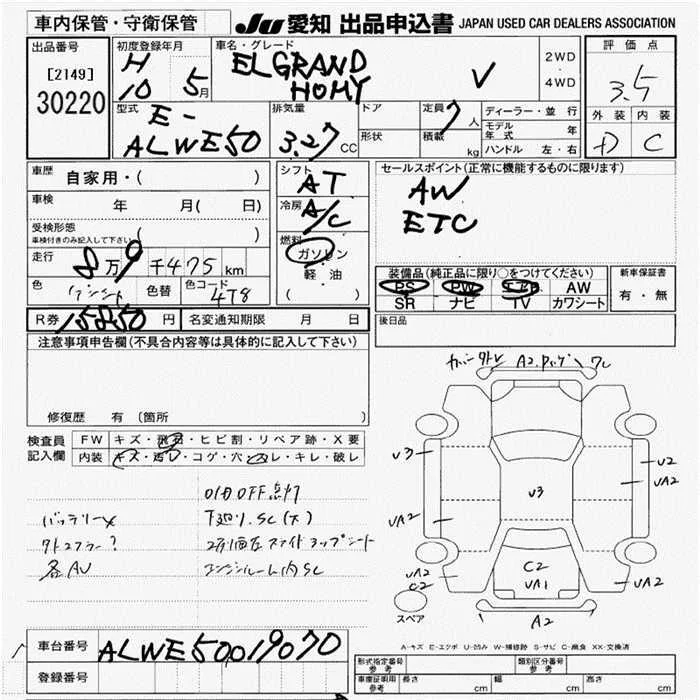 車内保管・守衛保管
JU 愛知 出品申込書 JAPAN USED CAR DEALERS ASSOCIATION
出品番号
[2149]
30220
初度登録年月
H 10 5月
車名・グレード
ELGRAND
HOMY V
2WD
・
4WD
評価点
3.5
外装 内装
D C
型式
E-
ALWE50
排気量
3.27 CC
ドア
形状
定員 7人
積載 kg
ディーラー・並行
モデル年式 年
ハンドル 左・右
車歴 自家用・( )
車検 年 月( 日)
受検形態
車検付きのみ記入して下さい ( )
走行 8万 9千475 km
色 色替 色コード 4T8
R券 15850 円 名変通知期限 月 日
シフト AT
冷房 A/C
燃料
ガソリン
・
軽・油
( )
セールスポイント(正常に機能するものに限ります)
AW
ETC
装備品(純正品に限り○をつけてください)
PS PW エアB AW
SR ナビ TV カワシート
新車保証書
有・無
後日品
注意事項申告欄(不具合内容等は具体的に記入して下さい)
修復歴 有 (箇所 )
検査員
記入欄
FW キズ・飛石・ヒビ割・リペア跡・X要
内装 キズ・汚レ・コゲ・穴・コレ・キレ・破レ
O/D OFF点灯
バッテリー×
下廻り.SC(大)
各AU
エンジンルーム内SC
A2
V3
U3
U2
UA2
UA2
UA2
C2
C2
UA1
UA2
A2
スペア
A-キズ E-エクボ U-凹み W-補修跡 S-サビ C-腐食 XX-交換済
車台番号 ALWE50019070
登録番号
形式指定番号 参考 類別区分番号 参考
車庫証明用 参考 長さ cm 幅 cm 高さ cm